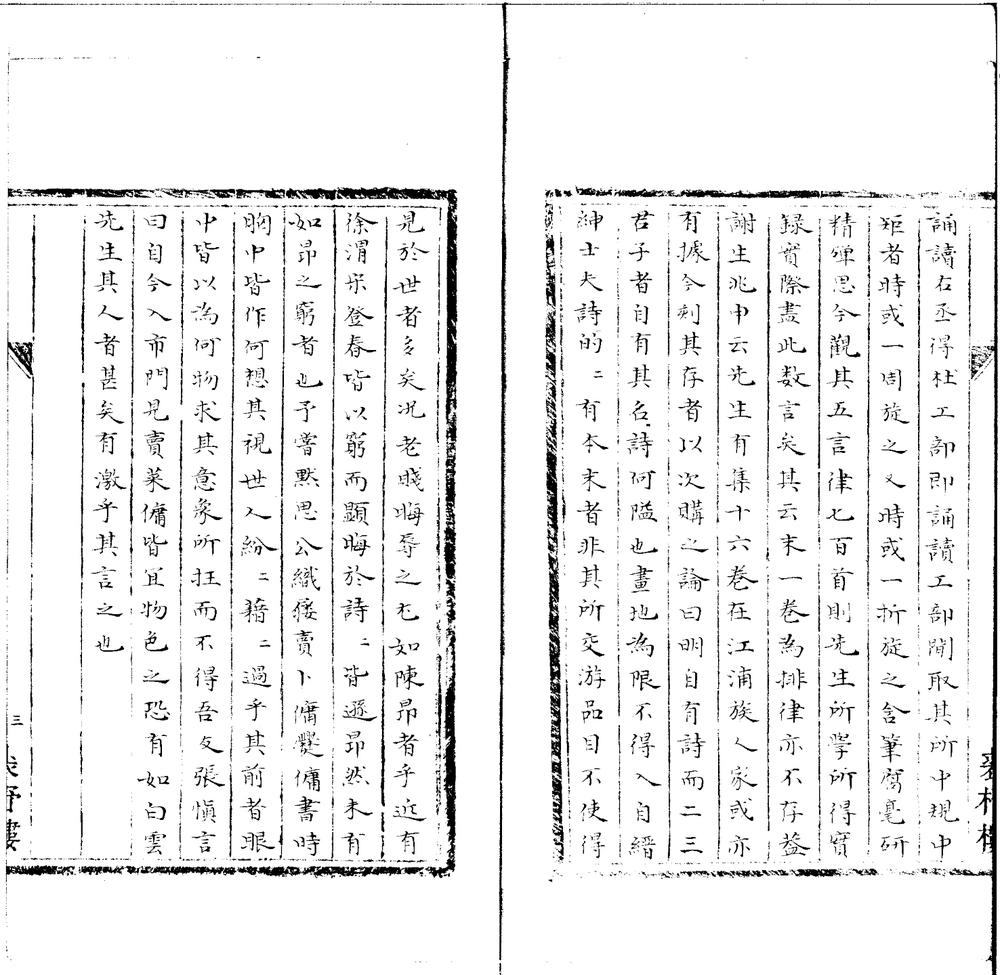 誦讀右丞得杜工部即誦讀工部間取其所中規中
矩者時或一周旋之又時或一折旋之含筆腐毫研
精殫思今觀其五言律七百首則先生所學所得實
錄實際盡此数言矣其云末一卷為排律亦不存葢
謝生兆申云先生有集十六卷在江浦族人家或亦
有據今刻其存者以次購之論曰明自有詩而二三
君子者自有其名詩何隘也畫地為限不得入自縉
紳士夫詩的〻有本末者非其所交游品目不使得
見於世者多矣况老賤晦辱之尤如陳昂者乎近有
徐渭宋登春皆以窮而顯晦於詩〻皆遜昂然未有
如昂之窮者也予嘗默思公織屨賣卜傭爨傭書時
胸中皆作何想其視世人紛〻藉〻過乎其前者眼
中皆以為何物求其意象所在而不得吾友張愼言
曰自今入市門見賣菜傭皆宜物色之恐有如白雲
先生其人者甚矣有激乎其言之也
三